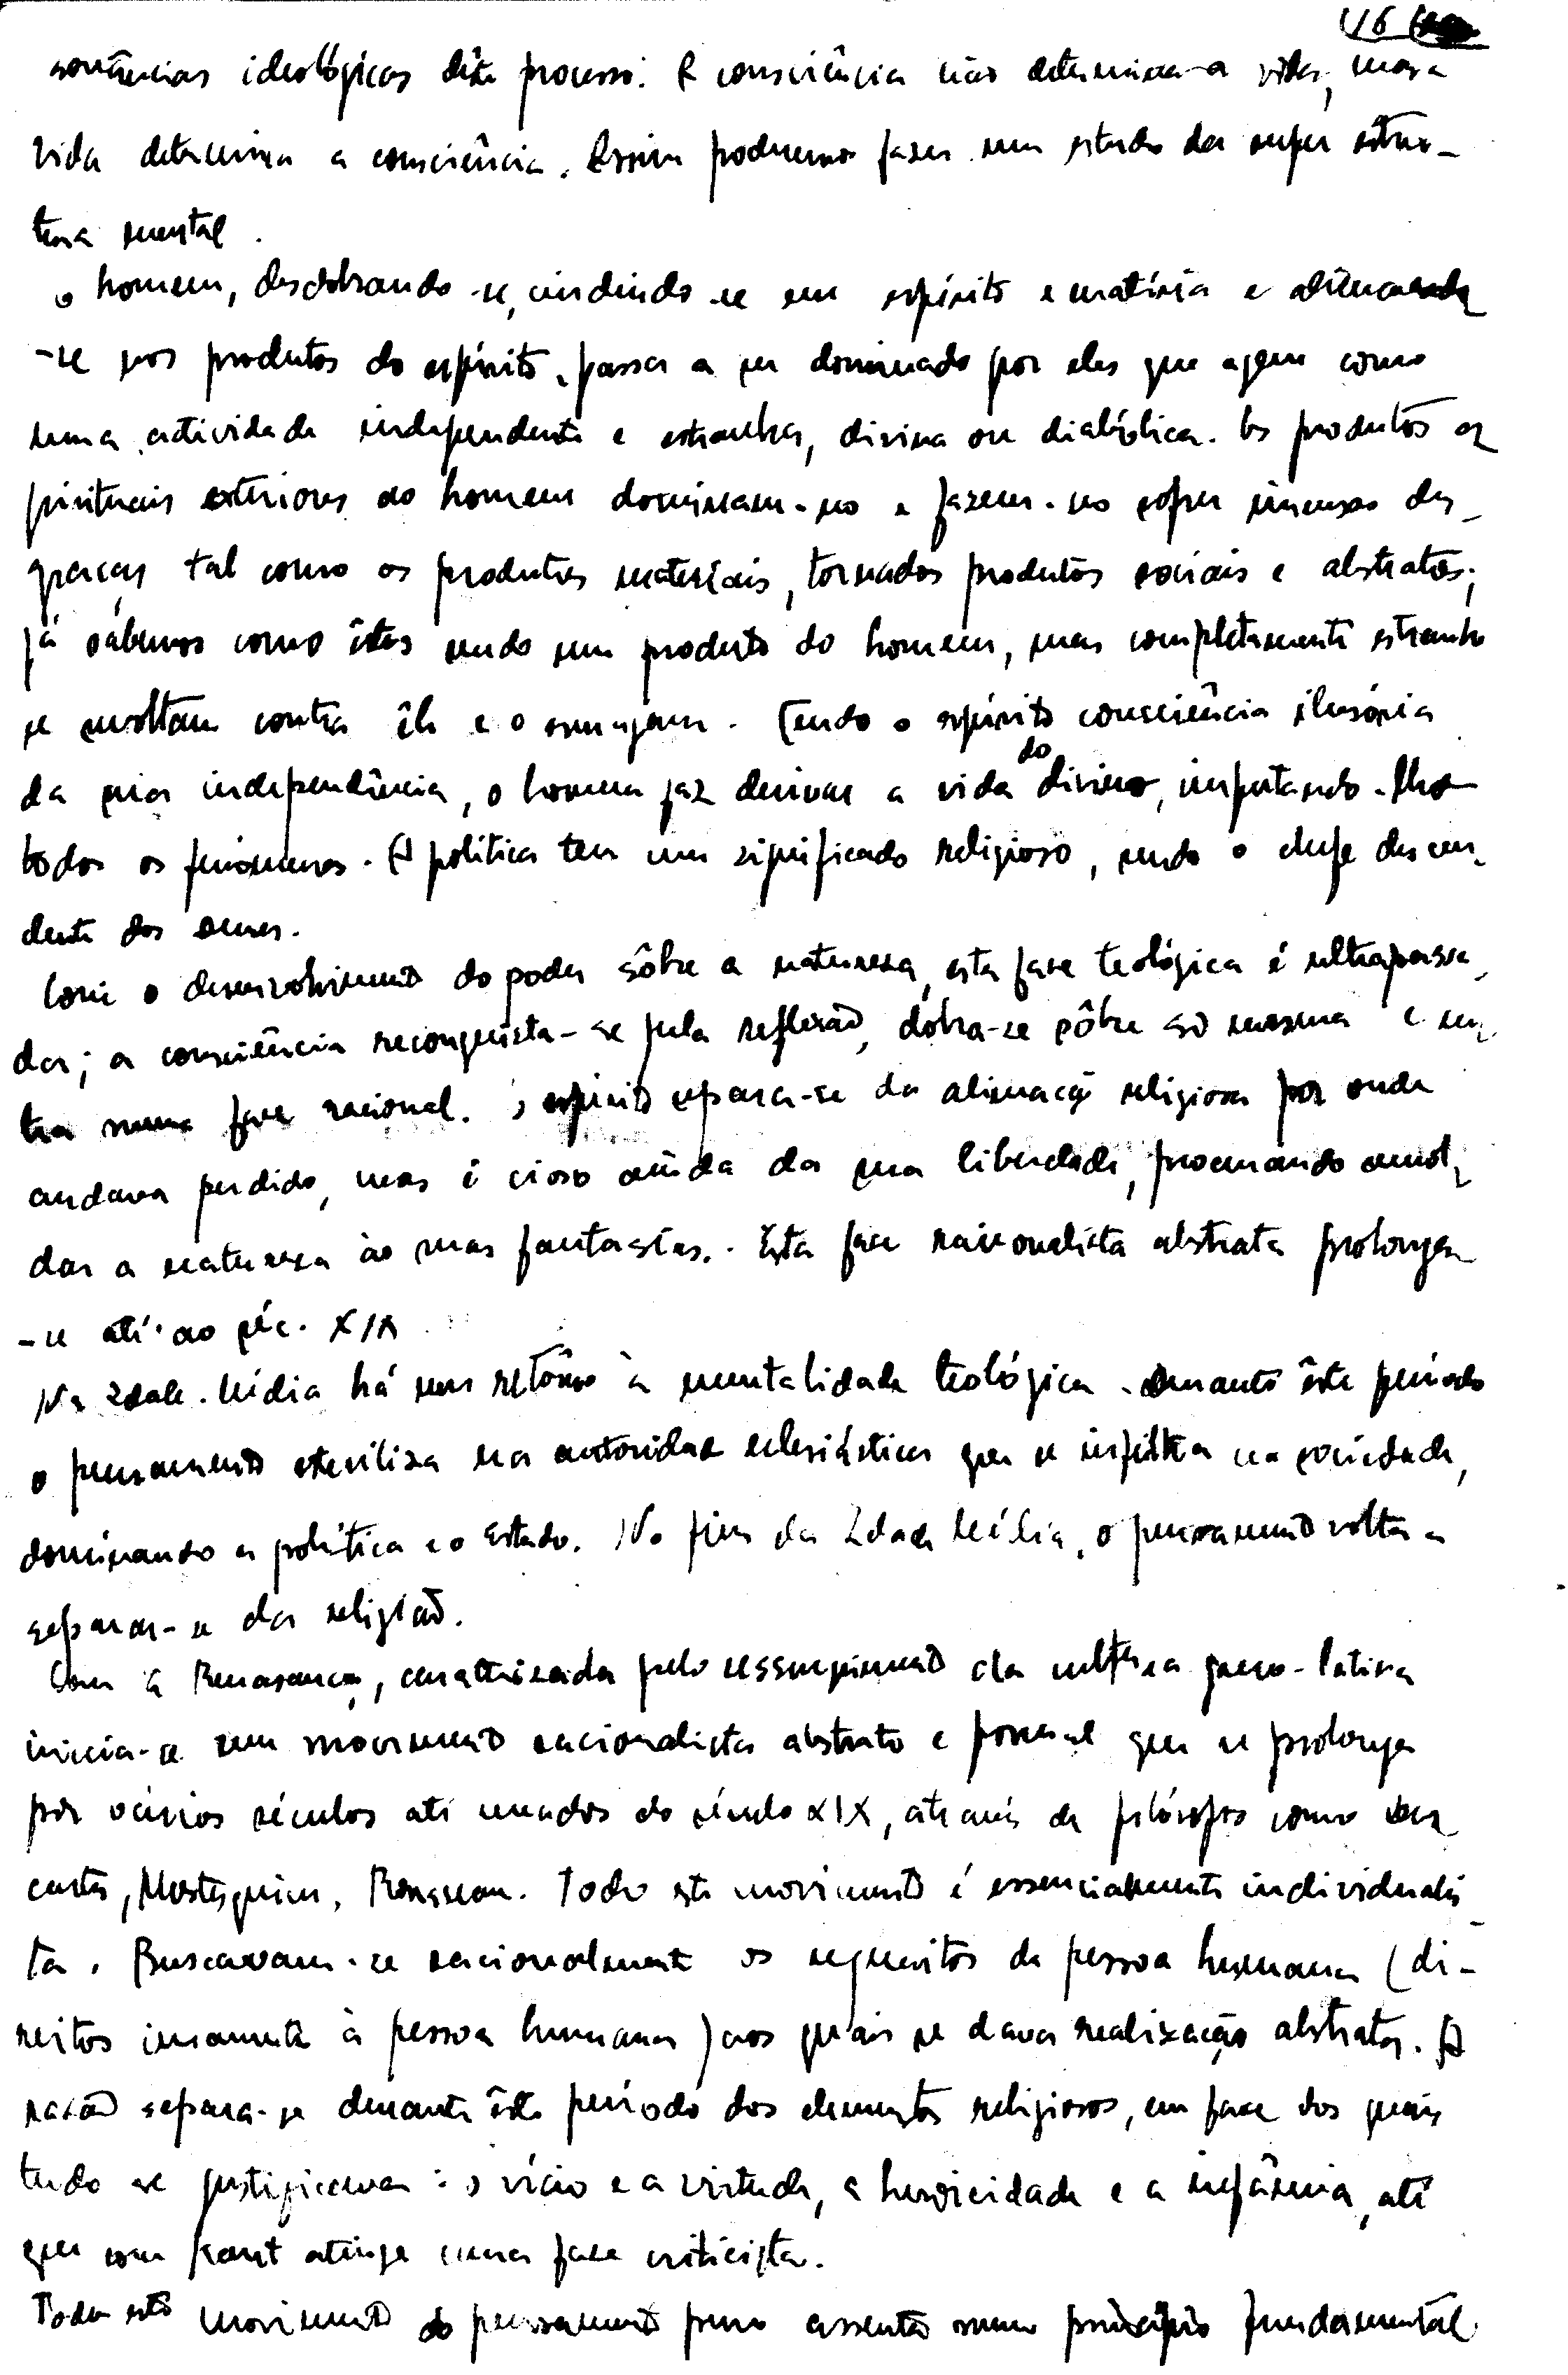 V6
ideológicas dêste processo. A consciência não determina a vida, mas a
vida determina a consciência. Assim podemos fazer um estudo da super estru-
tura mental.
O homem, desdobrando-se, cindindo-se em espírito e matéria e
-se nos produtos do espírito, passa a ser dominado por eles que agem como
uma actividade independente e estranha, divina ou diabólica. Os produtos es
pirituais exteriores ao homem dominam-no e fazem-no sofrer imensas des_
graças tal como os produtos materiais, tornados produtos sociais e abstratos;
já sabemos como êstes sendo um produto do homem, mas completamente estranho
se revoltam contra êle e o esmagam. Tendo o espírito consciência ilusória
da sua independência, o homem faz derivar a vida do divino, imputando-lhe
todos os fenómenos. A política tem um significado religioso, sendo o chefe descen_
dente dos deuses.
Com o desenvolvimento do poder sôbre a natureza, esta fase teológica é ultrapassa_
da; a consciência reconquista-se pela reflexão, dobra-se sôbre si mesma e en_
tra numa fase racional. O espírito separa-se da alienação religiosa por onde
andava perdido, mas é cioso ainda da sua liberdade, procurando amol_
dar a natureza às suas fantasias. Esta fase racionalista abstrata prolonga
-se até ao séc. XIX
Na Idade Média há um retôrno à mentalidade teológica. Durante êste período
o pensamento esteriliza na autoridade eclesiástica que se infiltra na sociedade,
dominando a política e o Estado. No fim da Idade Média, o pensamento volta a
separar-se da religião.
Com a Renascença, caracterizada pelo ressurgimento da cultura greco-latina
inicia-se um movimento racionalista abstrato e formal que se prolonga
por vários séculos até meados do século XIX, através de filósofos como Des
cartes, Montesquieu, Rousseau. Todo este movimento é essencialmente individualis
ta. Buscavam-se racionalmente os requisitos da pessoa humana (di-
reitos à pessoa humana) aos quais se dava realização abstrata. A
razão separa-se durante êste período dos elementos religiosos, em face dos quais
tudo se justificava: o vício e a virtude, a heroicidade e a infâmia, até
que com Kant atinge uma fase criticista.
Todo este movimento do pensamento puro assenta num princípio fundamental